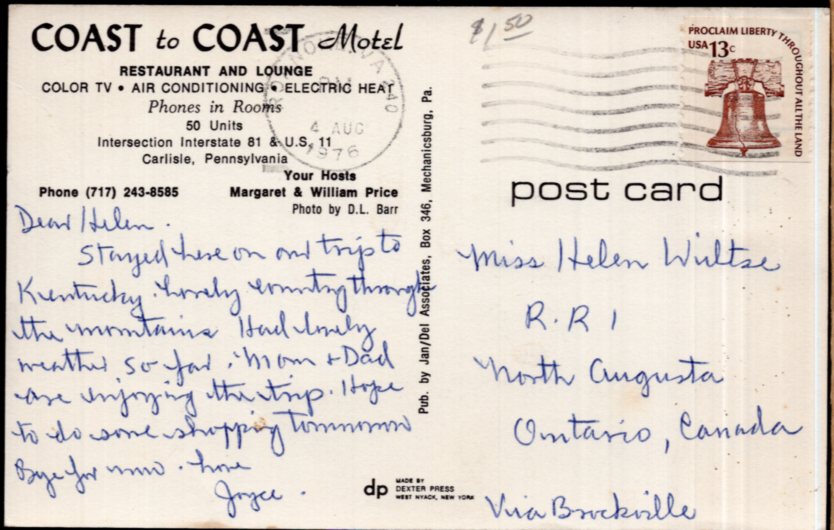 COAST to COAST Motel
RESTAURANT AND LOUNGE
COLOR TV • AIR CONDITIONING • ELECTRIC HEAT
Phones in Rooms
50 Units
Intersection Interstate 81 & U.S. 11
Carlisle, Pennsylvania
Your Hosts
Phone (717) 243-8585 Margaret & William Price
Photo by D.L. Barr
Dear Helen.
Stayed here on our trip to
Kentucky. Lovely country through
the mountains Had lovely
weather so far. Mom & Dad
are enjoying the trip. Hope
to do some shopping tommorow
Bye for now. Love
Joyce.
Pub. by Jan/Del Associates, Box 346, Mechanicsburg, Pa.
dp MADE BY
DEXTER PRESS
WEST NYACK, NEW YORK
$1.50
PM
4 AUG
1976
PROCLAIM LIBERTY THROUGHOUT ALL THE LAND
USA 13c
post card
Miss Helen Wiltse
R.R 1
North Augusta
Ontario, Canada
Via Brockville